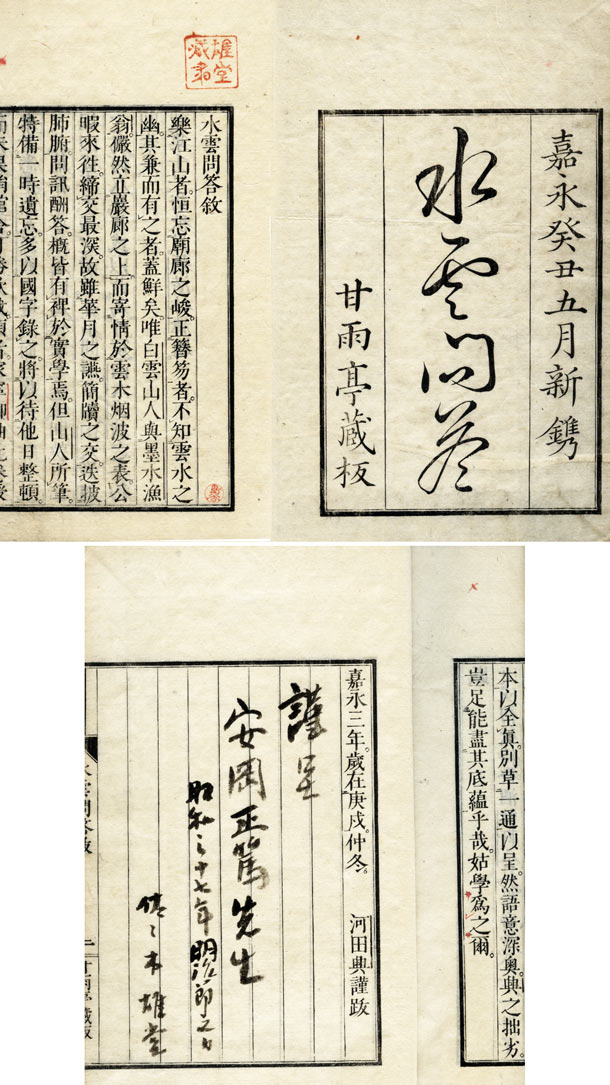 嘉永癸丑五月新鐫
水雲問答
甘雨亭蔵板
雄堂
蔵書
水雲問答敘
樂江山者。恒忘廟廊之峻。正簪笏者。不知雲水之
幽。其兼而有之者。蓋鮮矣。唯白雲山人與墨水漁
翁。儼然立巖廊之上。而寄情於雲水烟波之表。公
暇來徃。締交最深。故雖華月之讌。簡牘之交。迭披
肺腑。問訊酬答。概皆有裨於實學焉。但山人所筆。
特備一時遺忘。多以國字錄之。將以待他日整頓。
本以全眞。別草一通以呈。然語意深奧。典之拙劣。
豈足能盡其底蘊乎哉。姑學爲之爾。
嘉永三年。歲在庚戌。仲冬。 河田典謹跋
謹呈
安岡正篤先生
昭和三十七年明治節之日
佐々木雄堂
水雲問答跋